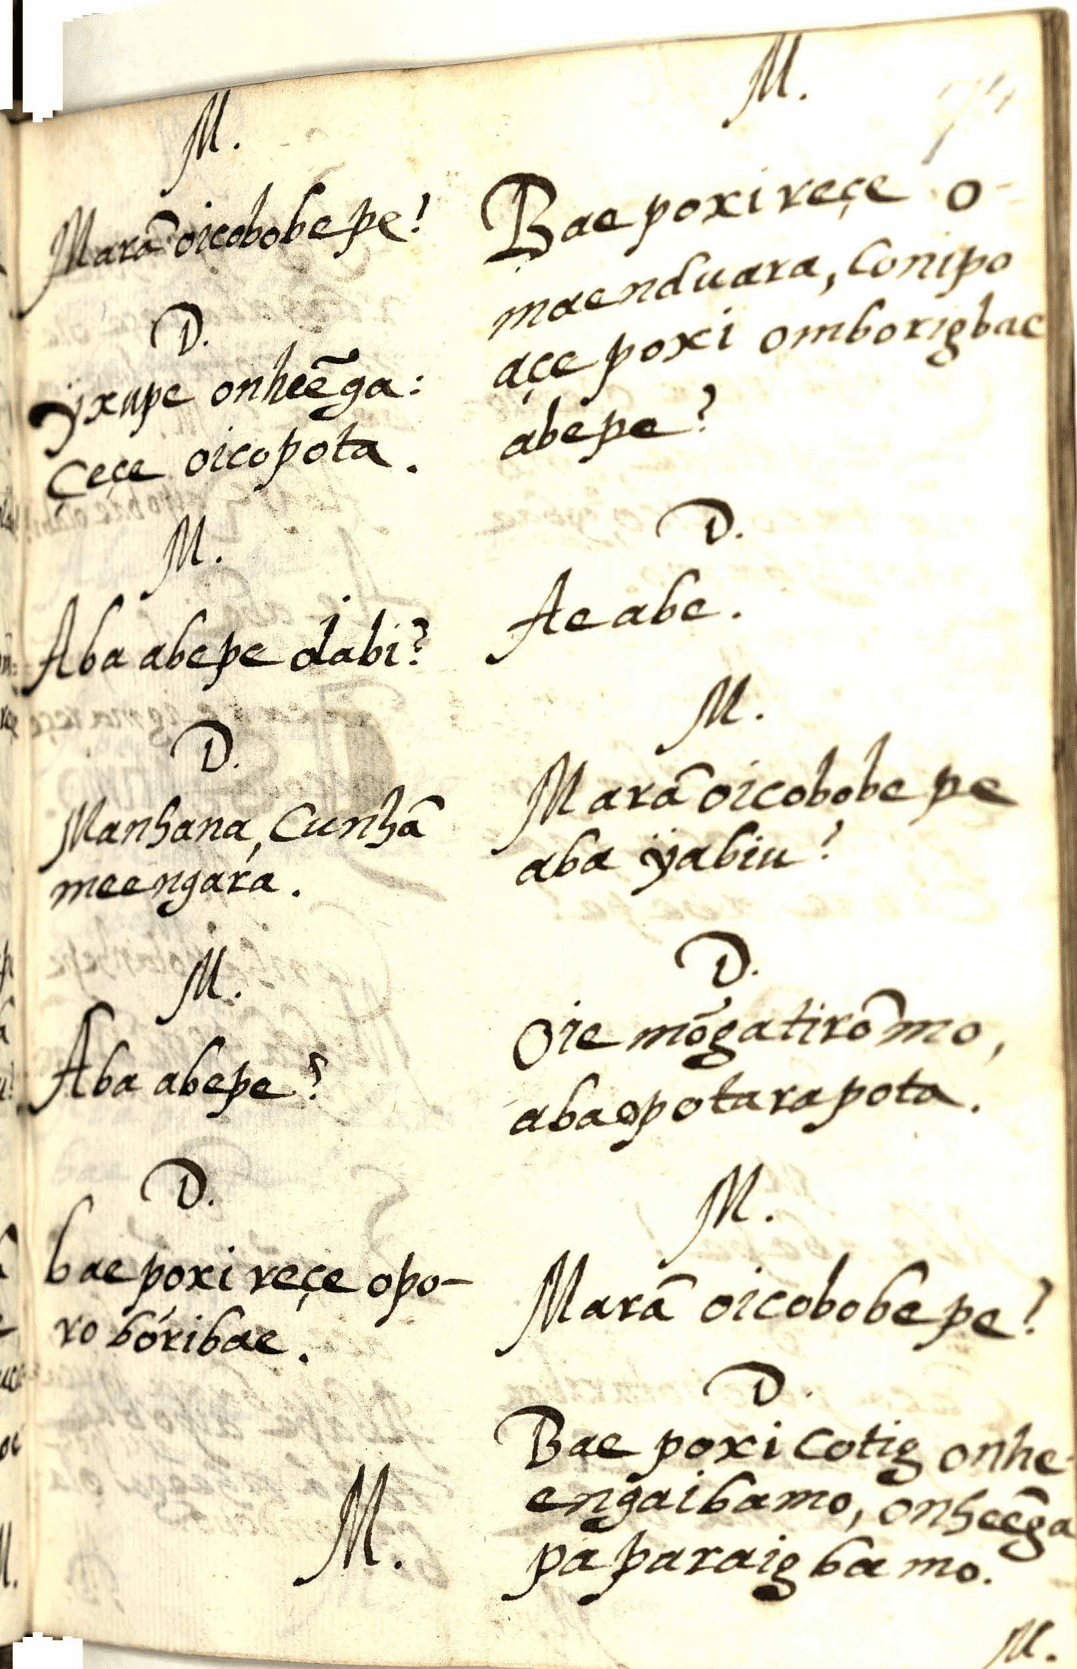 M.
Marã oicobobepe?
D.
yxupe onheẽga:
çeçe oicopota.
M.
Aba abepe dabi?
D.
Manhana, Cunhã
meengára.
M.
Aba abepe?
D.
bae poxi reçe opo-
ro bóribae.
M.
M.
Bae poxi reçe o-
maenduara, Conipo
açe poxi omborigbae
abepe?
D.
Ae abe.
M.
Marã oicobobe pe
aba ÿabiu?
D.
Oie mõgatirõmo,
abaopotarapota.
M.
Marã oicobobe pe?
D.
Bae poxi cotig onhe-
engaibamo, onheẽga
pa paraigbamo.
M.